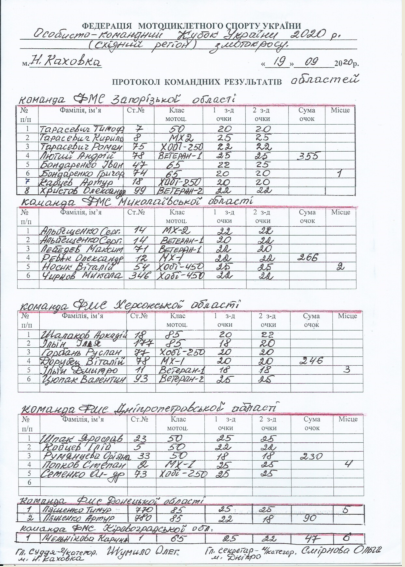 ФЕДЕРАЦІЯ МОТОЦИКЛЕТНОГО СПОРТУ УКРАЇНИ
Особисто-командний Кубок України 2020 р.
(східний регіон) з мотокросу.
м. Н. Каховка « 19 » 09 2020р.
ПРОТОКОЛ КОМАНДНИХ РЕЗУЛЬТАТІВ областей
команда ФМС Запорізької області
№ п/п Фамілія, ім’я Ст.№ Клас мотоц. 1 з-д очки 2 з-д очки Сума очок Місце
1 Тарасевич Тимофій 7 50 20 20
2 Тарасевич Кирило 8 МХ2 25 25
3 Тарасевич Роман 75 Хоббі-250 22 22
4 Лютий Андрій 78 Ветеран-1 25 25 355
5 Бондаренко Іван 47 65 22 25
6 Бондаренко 74 65 20 20 1
7 Артур 18 Хоббі-250 20 20
8 Христов Олександр 99 Ветеран-2 22 22
команда ФМС Миколаївської області
№ п/п Фамілія, ім’я Ст.№ Клас мотоц. 1 з-д очки 2 з-д очки Сума очок Місце
1 Серг. 14 МХ-2 22 22
2 Серг. 14 Ветеран-1 20 22
3 Лебедєв Максим 71 Ветеран-1 22 20
4 Олександр 12 МХ-1 22 22 266
5 Носик Віталій 54 Хоббі-450 25 25 2
6 Чирков Микола 346 Хоббі-450 22 22
команда ФМС Херсонської області
№ п/п Фамілія, ім’я Ст.№ Клас мотоц. 1 з-д очки 2 з-д очки Сума очок Місце
1 Аркадій 18 85 20 22
2 Ільїн Ілля 177 85 18 20
3 Горбань Руслан 77 Хоббі-250 20 20
4 Віталій 78 МХ-1 20 20 246
5 Ільїн Дмитро 11 Ветеран-1 18 18 3
6 Валентин 93 Ветеран-2 25 25
команда ФМС Дніпропетровської області
№ п/п Фамілія, ім’я Ст.№ Клас мотоц. 1 з-д очки 2 з-д очки Сума очок Місце
1 Шпак Ярослав 23 50 25 25
2 5 50 22 22
3 33 50 18 18 230
4 Попков Степан 2 МХ-1 25 25 4
5 Семенко 93 Хоббі-250 25 25
6
Команда ФМС Донецької області
1 Тимур 770 85 25 25 5
2 Артур 780 85 22 18 90
команда ФМС Кіровоградської обл.
1 Мельнікова Карина 1 65 25 22 47 6
Гл. суддя Шумило Олег. Гл. секретар Смірнова Ольга
м. Н. Каховка м. Дніпро